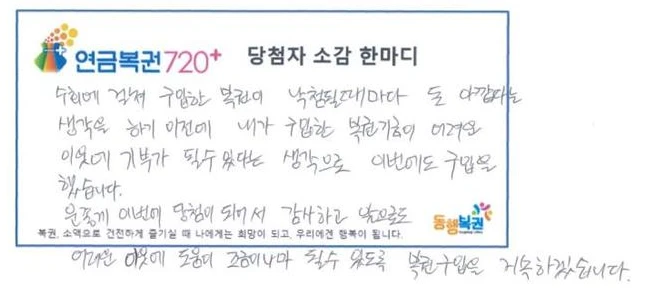 연금복권720+ 당첨자 소감 한마디
수회에 걸쳐 구입한 복권이 낙첨될때마다 돈 아깝다는
생각을 하기 이전에 내가 구입한 복권기금이 어려운
이웃에 기부가 될수있다는 생각으로 이번에도 구입을
했습니다.
운좋게 이번에 당첨이 되어서 감사하고 앞으로도
동행복권
복권, 소액으로 건전하게 즐기실 때 나에게는 희망이 되고, 우리에겐 행복이 됩니다.
어려운 이웃에 도움이 조금이나마 될수 있도록 복권구입을 계속하겠습니다.